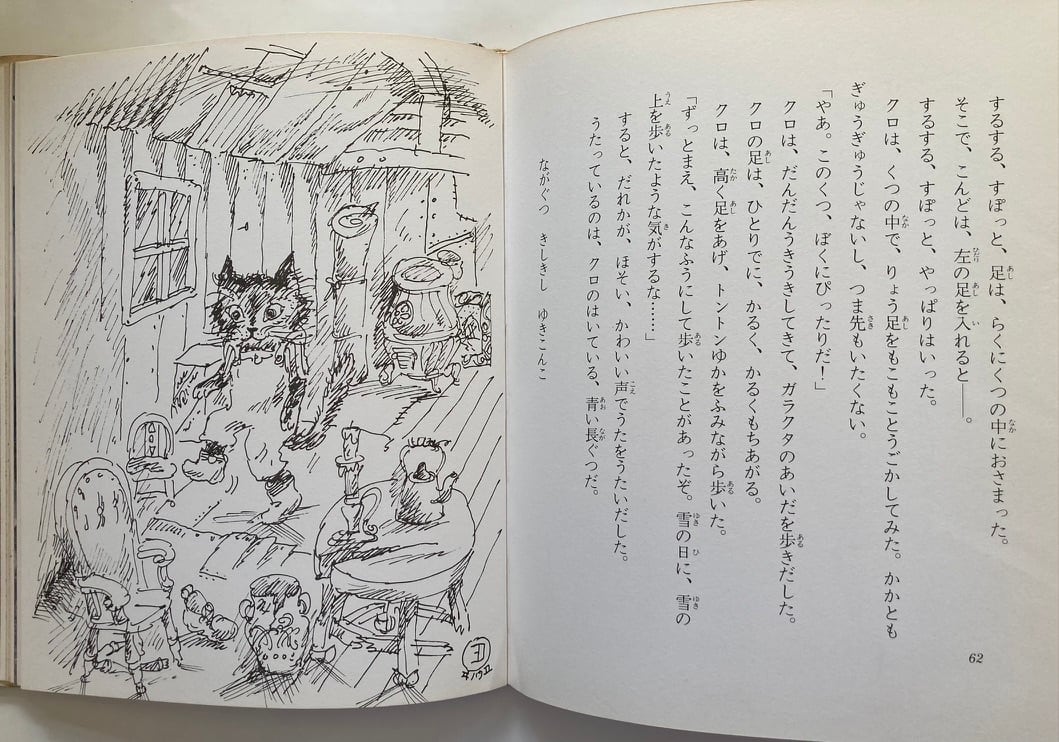 するする、すぽっと、足は、らくにくつの中におさまった。
そこで、こんどは、左の足を入れると――。
するする、すぽっと、やっぱりはいった。
クロは、くつの中で、りょう足をもこもことうごかしてみた。かかとも
ぎゅうぎゅうじゃないし、つま先もいたくない。
「やあ。このくつ、ぼくにぴったりだ！」
クロは、だんだんうきうきしてきて、ガラクタのあいだを歩きだした。
クロの足は、ひとりでに、かるく、かるくもちあがる。
クロは、高く足をあげ、トントンゆかをふみながら歩いた。
「ずっとまえ、こんなふうにして歩いたことがあったぞ。雪の日に、雪の
上を歩いたような気がするな……」
すると、だれかが、ほそい、かわいい声でうたをうたいだした。
うたっているのは、クロのはいている、青い長ぐつだ。
ながぐつ　きしきし　ゆきこんこ
62